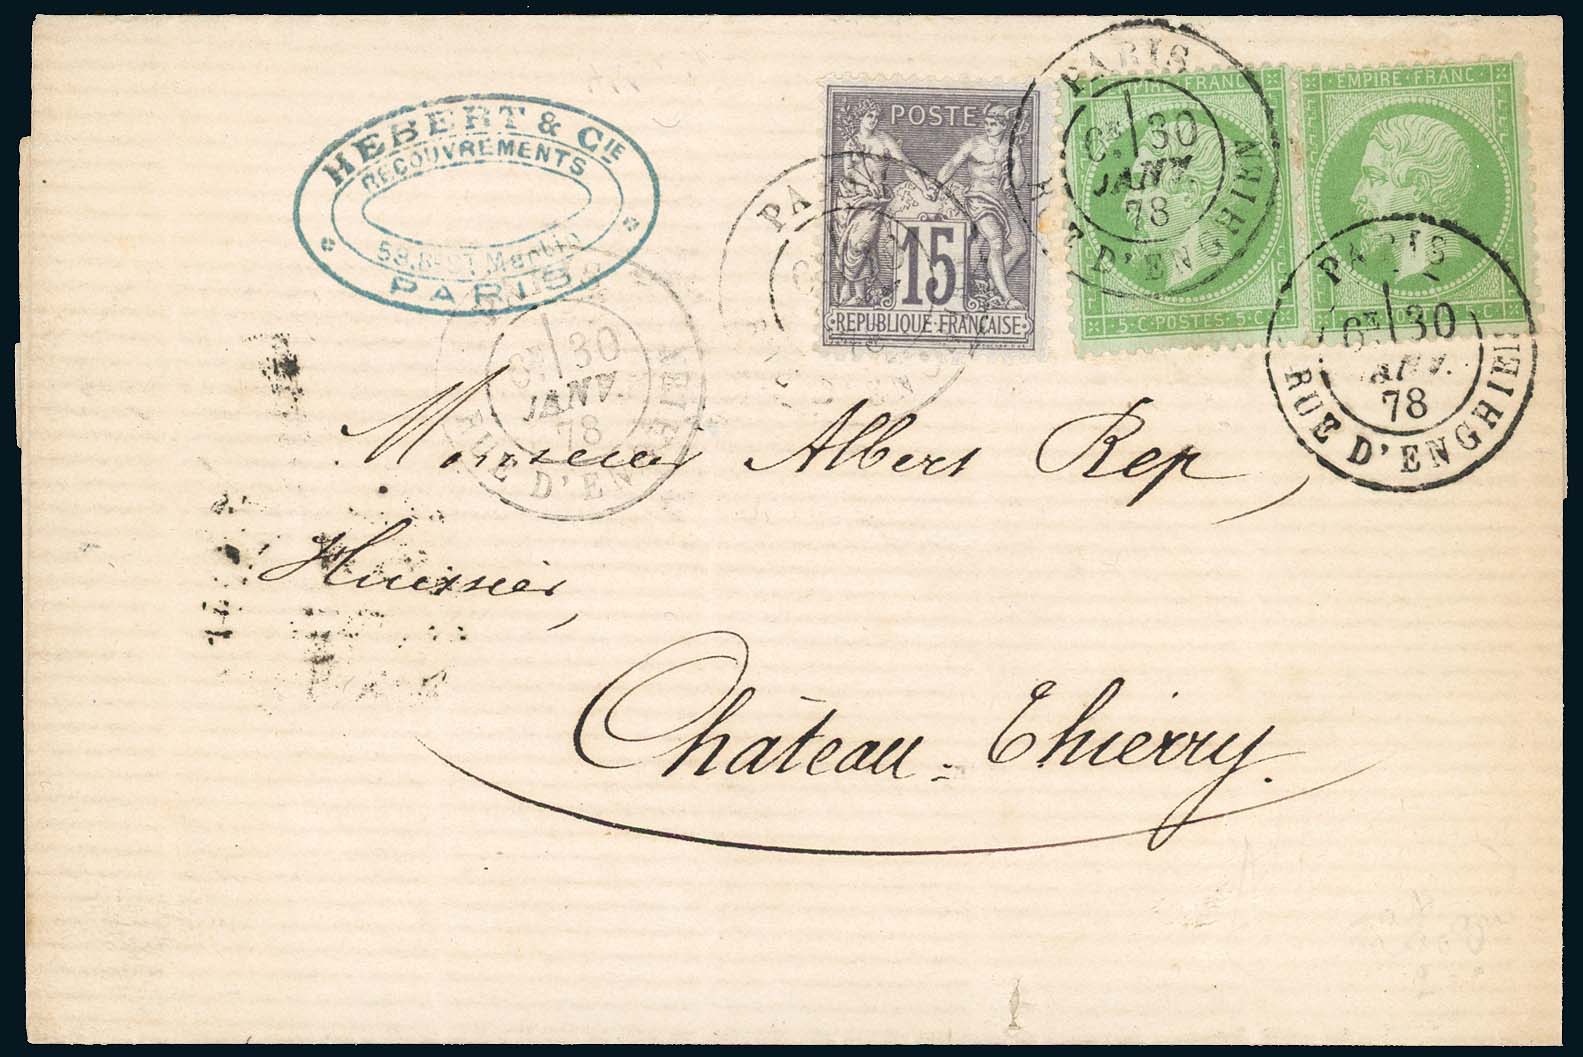 HEBERT & CIE
RECOUVREMENTS
53, R. ST Martin
PARIS
POSTE
15
REPUBLIQUE FRANÇAISE
EMPIRE FRANC
5 C POSTES 5 C
EMPIRE FRANC
PARIS
6E 30
JANV.
78
RUE D'ENGHIEN
PARIS
6E 30
JANV.
78
RUE D'ENGHIEN
6E 30
JANV.
78
RUE D'ENGHIEN
Monsieur Albert Rep,
Huissier,
Château-Thierry.